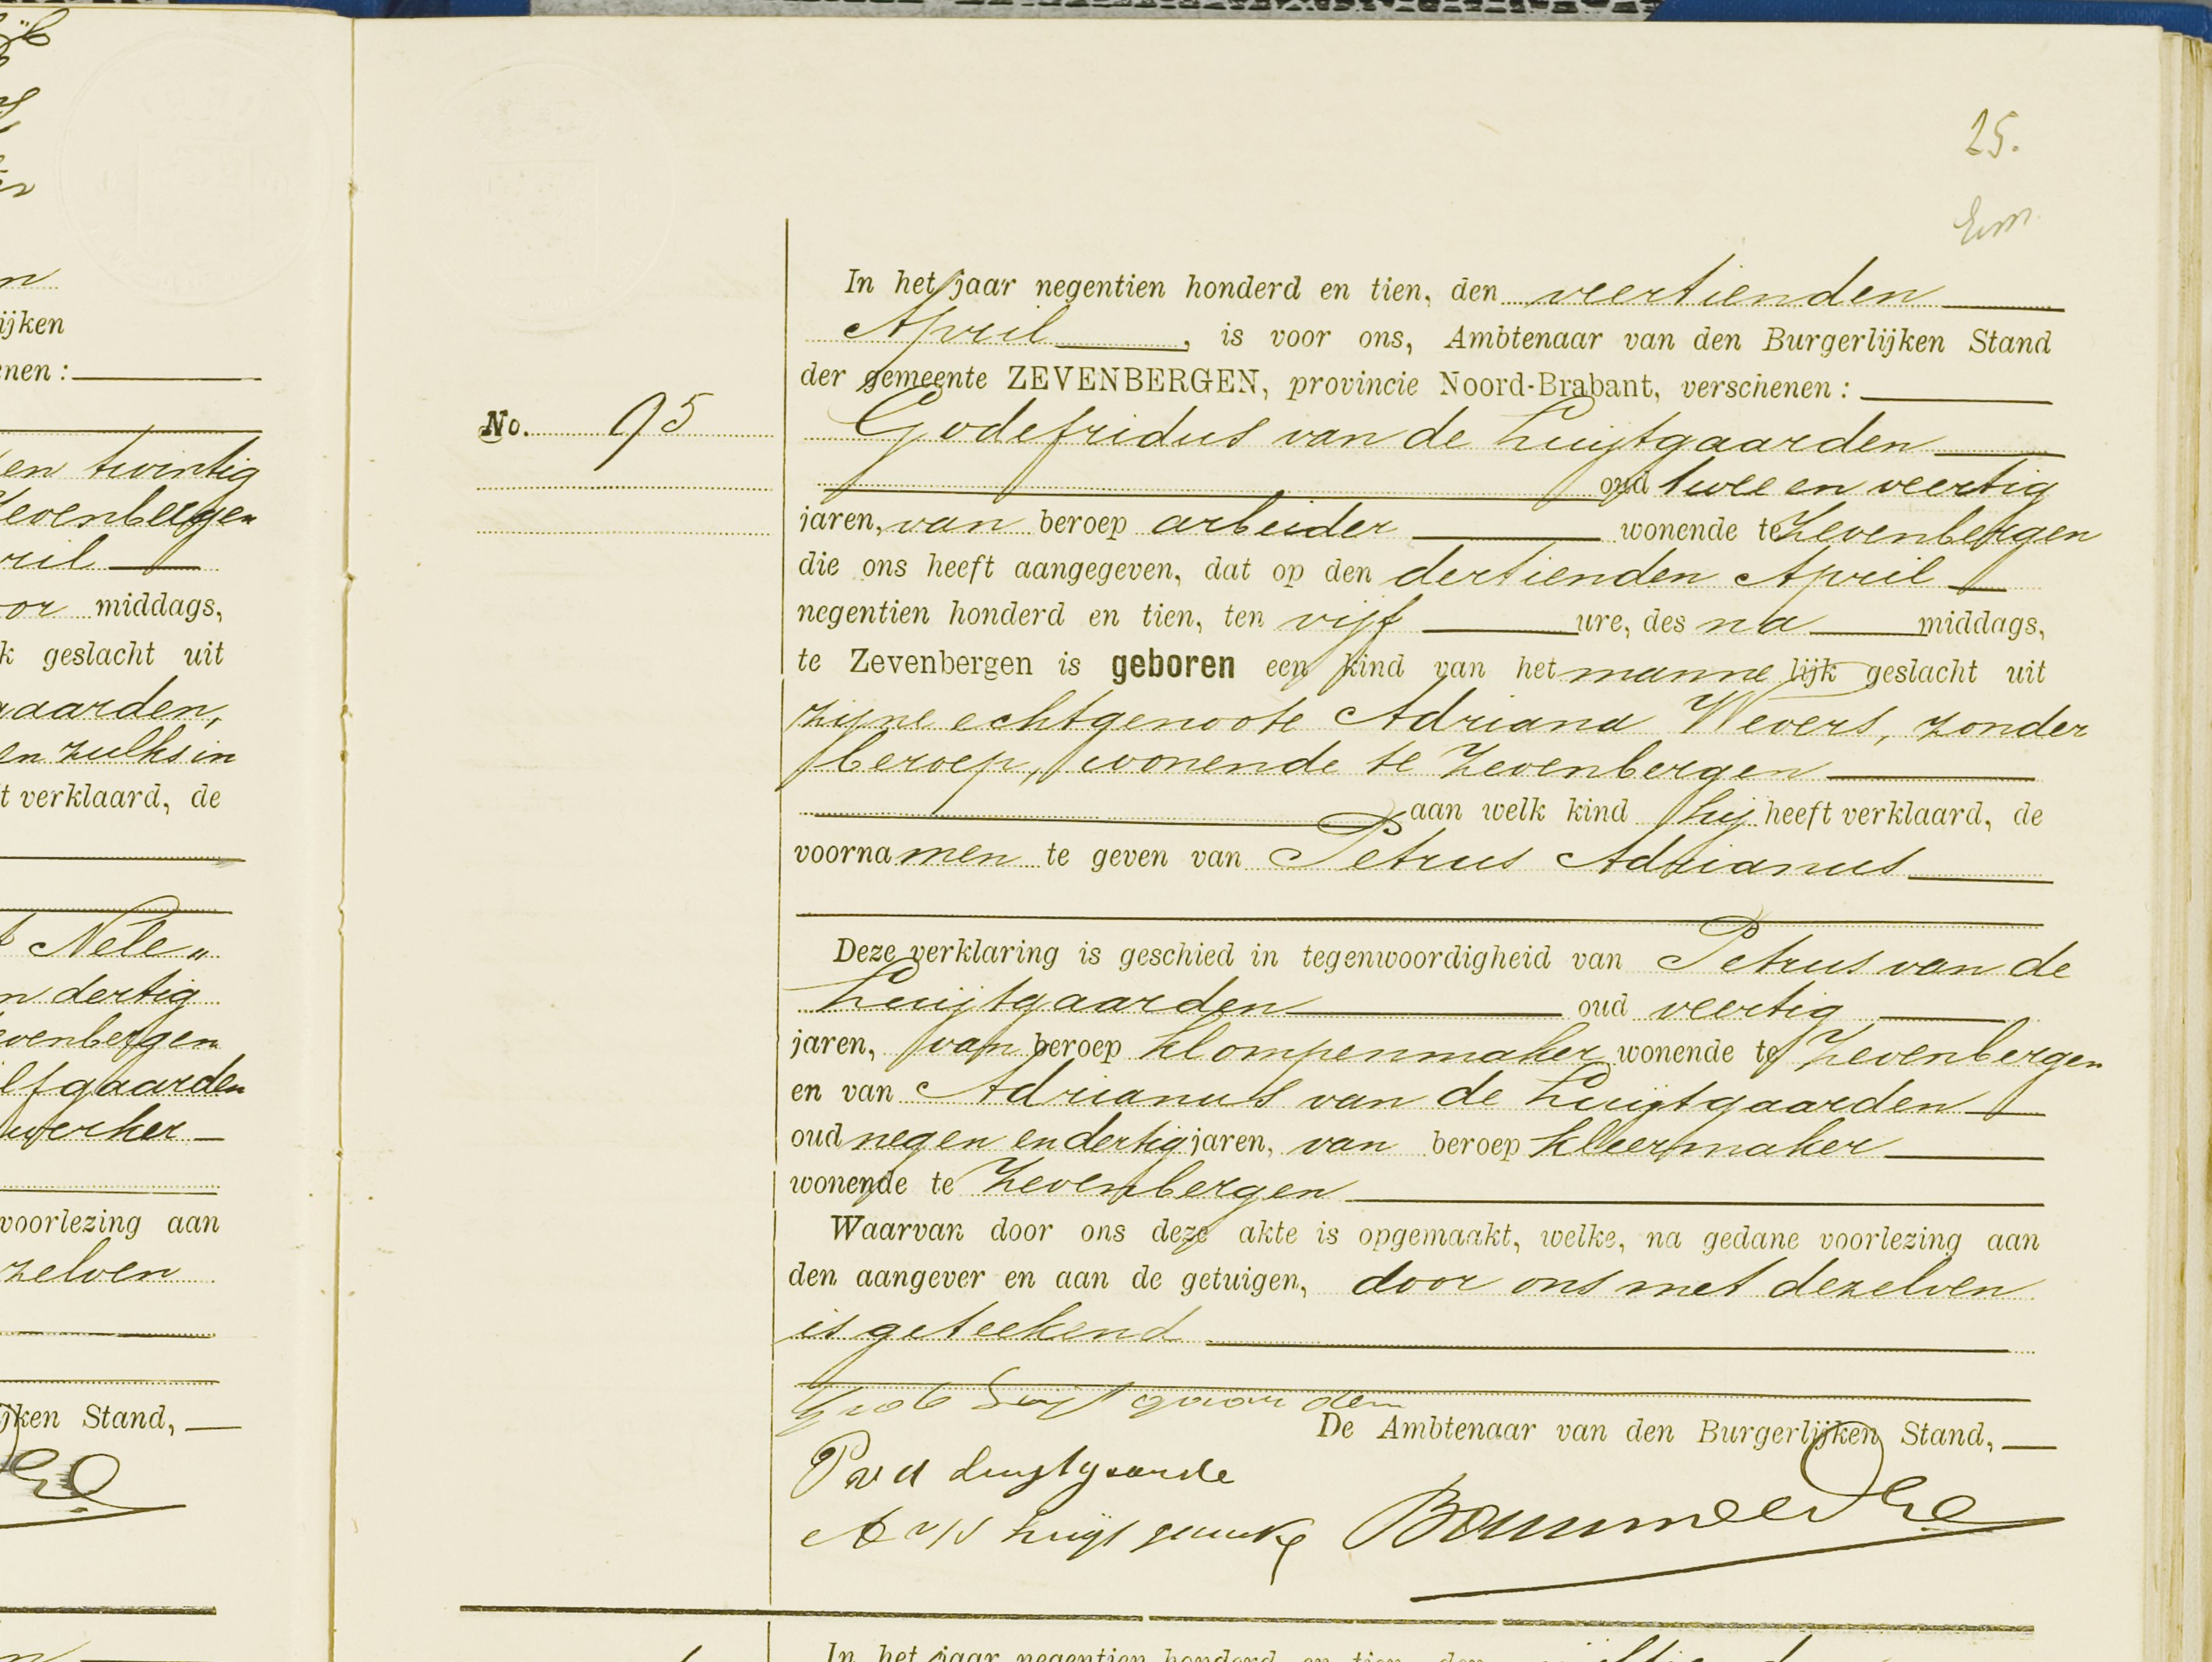 en twintig
Zevenbergen
ril
or middags,
k geslacht uit
aarden,
en zulks in
t verklaard, de
Nele„
n dertig
evenbergen
gaarden
werker
voorlezing aan
zelven
ijken Stand,
25.
In het jaar negentien honderd en tien, den veertienden
April, is voor ons, Ambtenaar van den Burgerlijken Stand
der gemeente ZEVENBERGEN, provincie Noord-Brabant, verschenen:
No. 95
Godefridus van de Luijtgaarden
oud twee en veertig
jaren, van beroep arbeider wonende te Zevenbergen
die ons heeft aangegeven, dat op den dertienden April
negentien honderd en tien, ten vijf ure, des na middags,
te Zevenbergen is geboren een kind van het mannelijk geslacht uit
zijne echtgenoote Adriana Wevers, zonder
beroep, wonende te Zevenbergen
aan welk kind hij heeft verklaard, de
voornamen te geven van Petrus Adrianus
Deze verklaring is geschied in tegenwoordigheid van Petrus van de
Luijtgaarden oud veertig
jaren, van beroep klompenmaker wonende te Zevenbergen
en van Adrianus van de Luijtgaarden
oud negen en dertig jaren, van beroep kleermaker
wonende te Zevenbergen
Waarvan door ons deze akte is opgemaakt, welke, na gedane voorlezing aan
den aangever en aan de getuigen, door ons met dezelven
is geteekend
De Ambtenaar van den Burgerlijken Stand,
In het jaar negentien honderd en tien, den